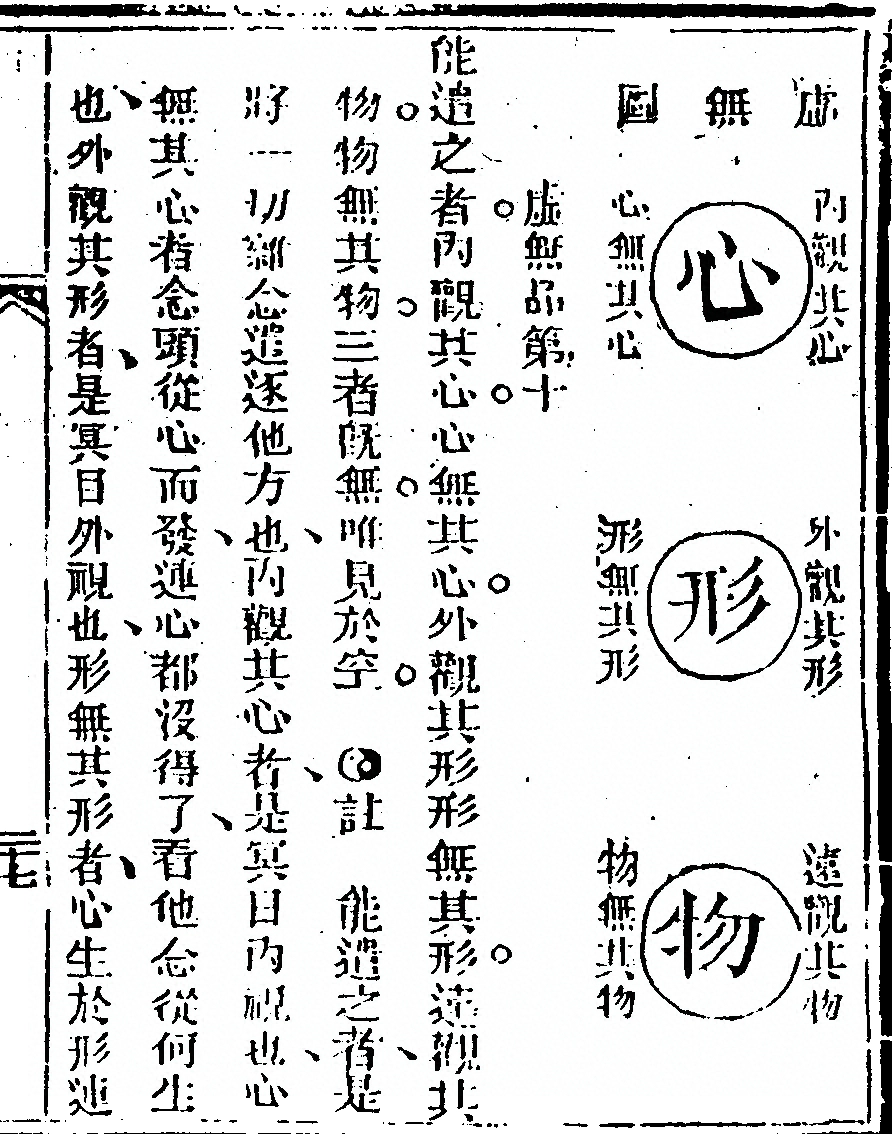 虛無圖
內觀其心
心
心無其心
外觀其形
形
形無其形
遠觀其物
物
物無其物
虛無品第十
能遣之者內觀其心心無其心外觀其形形無其形遠觀其
物物無其物三者既無唯見於空　註　能遣之者是
將一切雜念遣逐他方也內觀其心者是冥目內視也心
無其心者念頭從心而發連心都沒得了看他念從何生
也外觀其形者是冥目外視也形無其形者心生於形連
二七